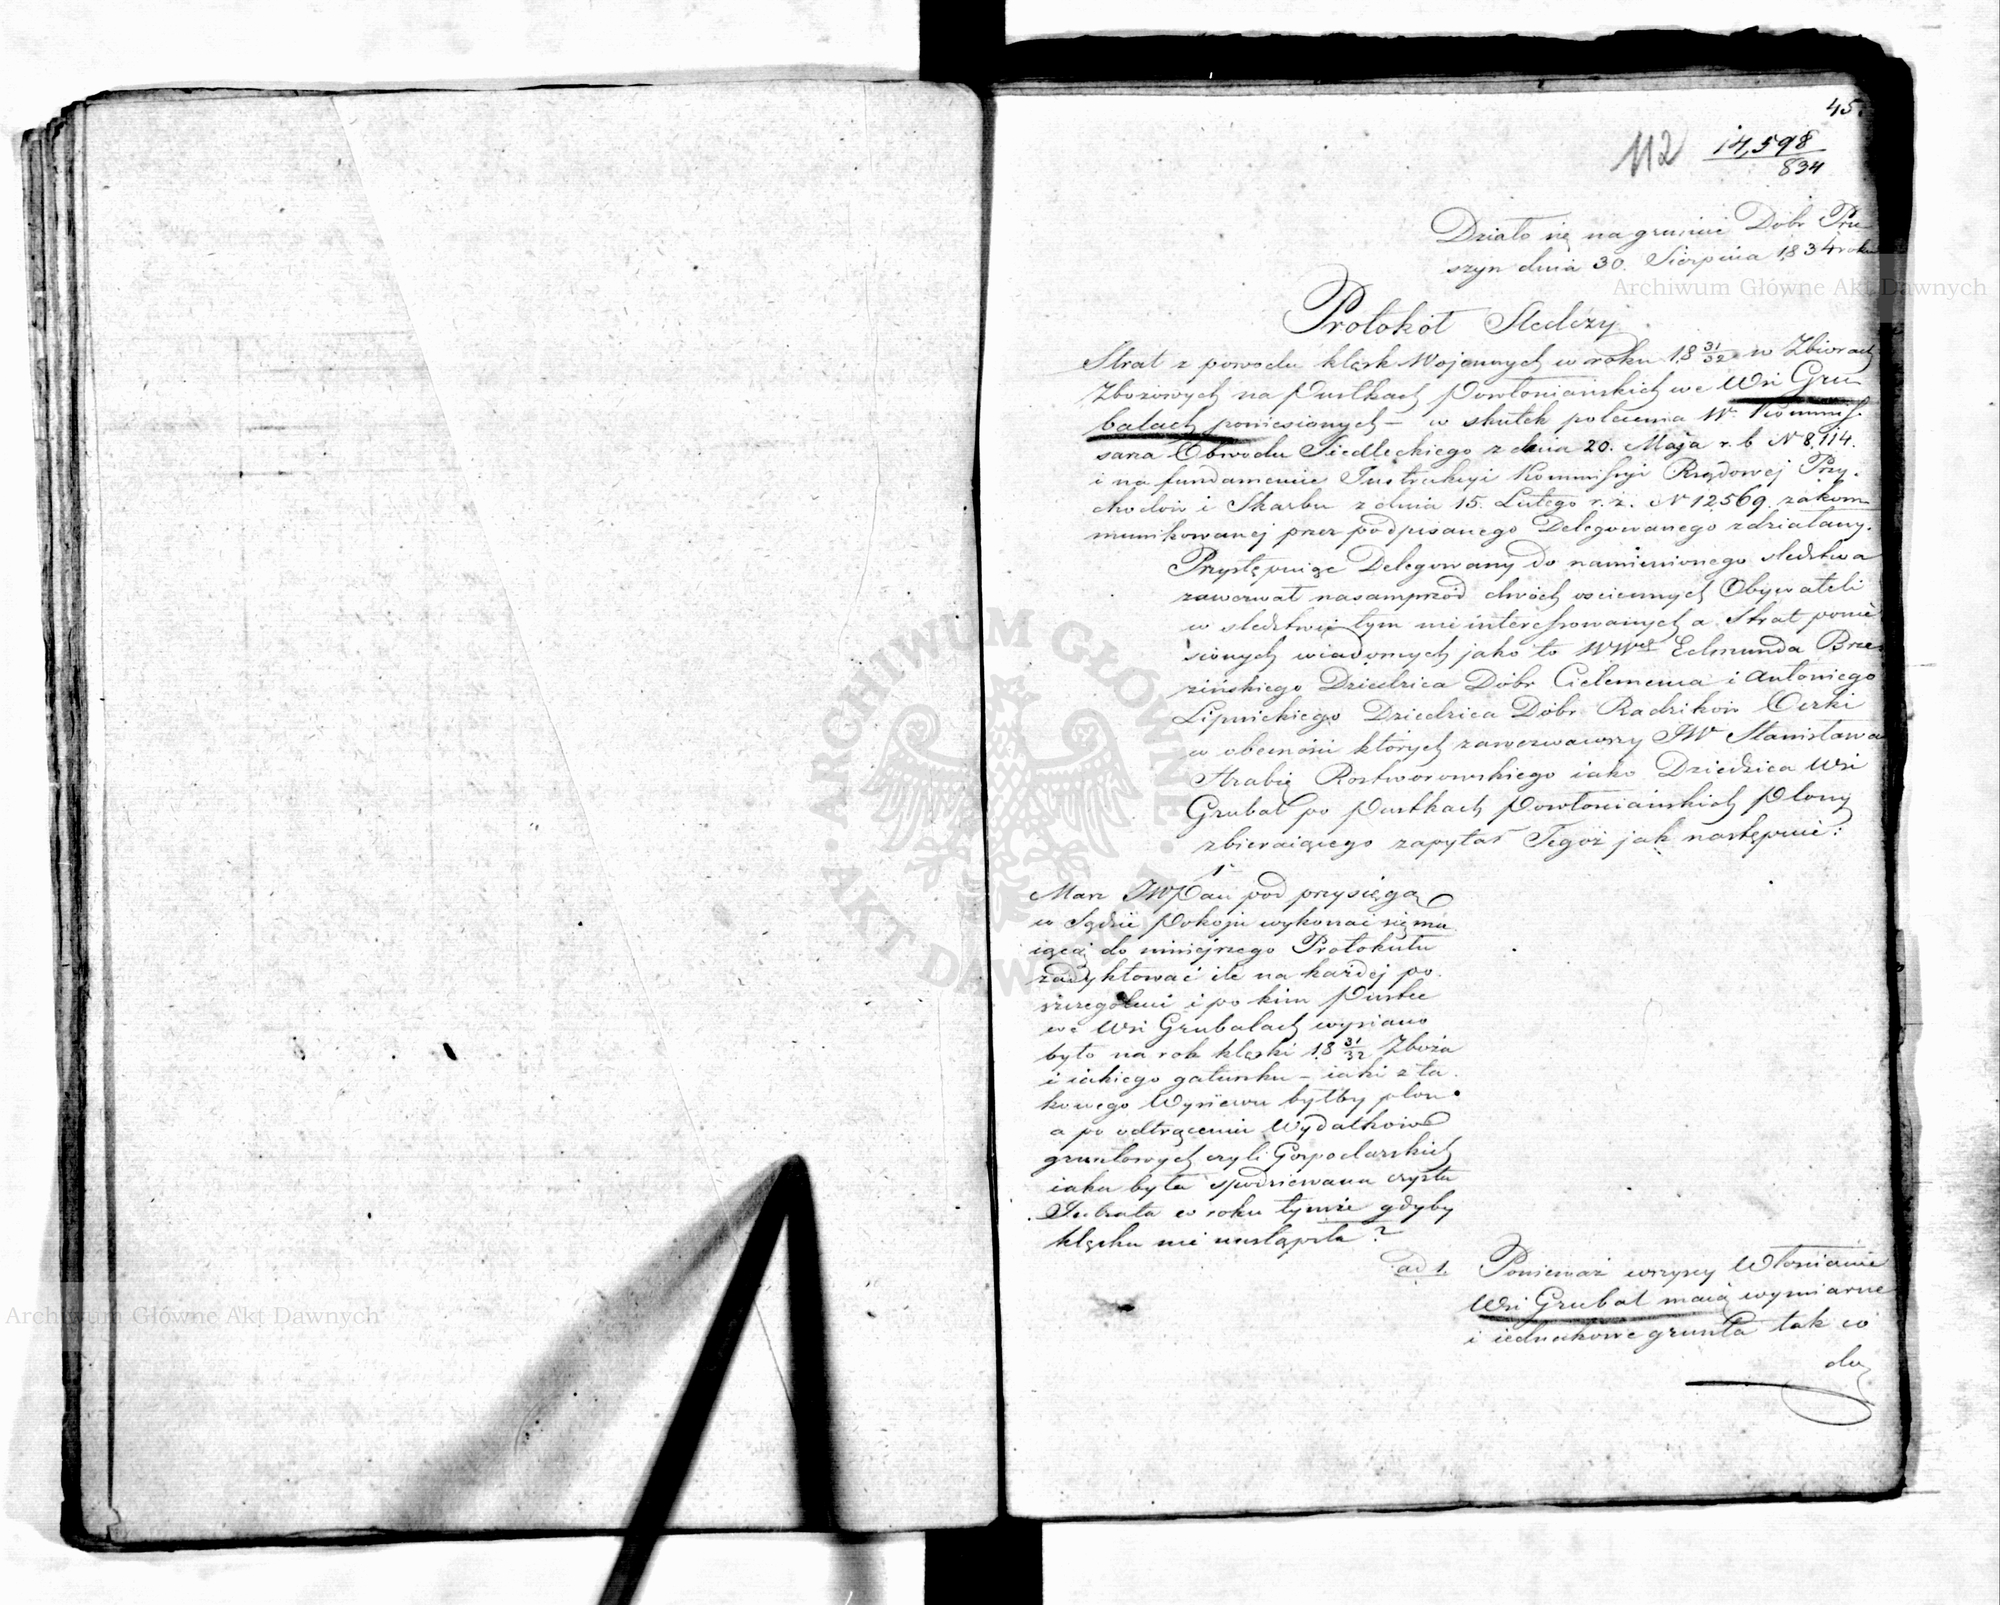 45.
112 14,598
834
Działo się na gruncie Dóbr Pru
szyn dnia 30. Sierpnia 1834 roku
Archiwum Główne Akt Dawnych
Protokół Sledczy
Strat z powodu klęsk Wojennych w roku 18 31/32 w Zbiorach
Zbożowych na Pustkach Powłoniańskich we Wsi Gru
bałach poniesionych – w skutek polecenia W. Kommis
sarza Obwodu Siedleckiego z dnia 20. Maja r. b N 8,114.
i na fundamencie Instrukcyi Kommissyi Rządowej Przy.
chodów i Skarbu z dnia 15. Lutego r. z. N 12569. zakom
munikowanej przez podpisanego Delegowanego zdziałany.
Przystępuiąc Delegowany do namienionego sledztwa
zawezwał nasamprzód dwóch ościennych Obywateli
w sledztwie tym nie interessowanych a Strat ponie
sionych wiadomych jako to WWch Edmunda Brze
zińskiego Dziedzica Dóbr Cielemenca i Antoniego
Lipnickiego Dziedzica Dóbr Radzików Oczki
w obecności których zawezwawszy JW Stanisława
Hrabię Rostworowskiego iako Dziedzica Wsi
Grubał po Pustkach Powłoniańskich Plony
zbieraiącego zapytał Tegoż jak następuie:
1.
Masz JWPan pod przysięgą
w Sądzie Pokoju wykonać się ma
iącą do niniejszego Protokułu
zadyktować ile na każdej po
szczególnie i po kim Pustce
we Wsi Grubałach wysiano
było na rok klęski 18 31/32 Zboża
i iakiego gatunku – iaki z ta
kowego Wysiewu byłby plon
a po odtrąceniu Wydatków
gruntowych czyli Gospodarskich
iaka była spodziewana czysta
Intrata w roku tymże gdyby
klęska nie nastąpiła?
ad 1. Ponieważ wszyscy Włościanie
Wsi Grubał maią wymiarne
i iednakowe grunta tak co
do
ARCHIWUM GŁÓWNE AKT DAWNYCH
Archiwum Główne Akt Dawnych